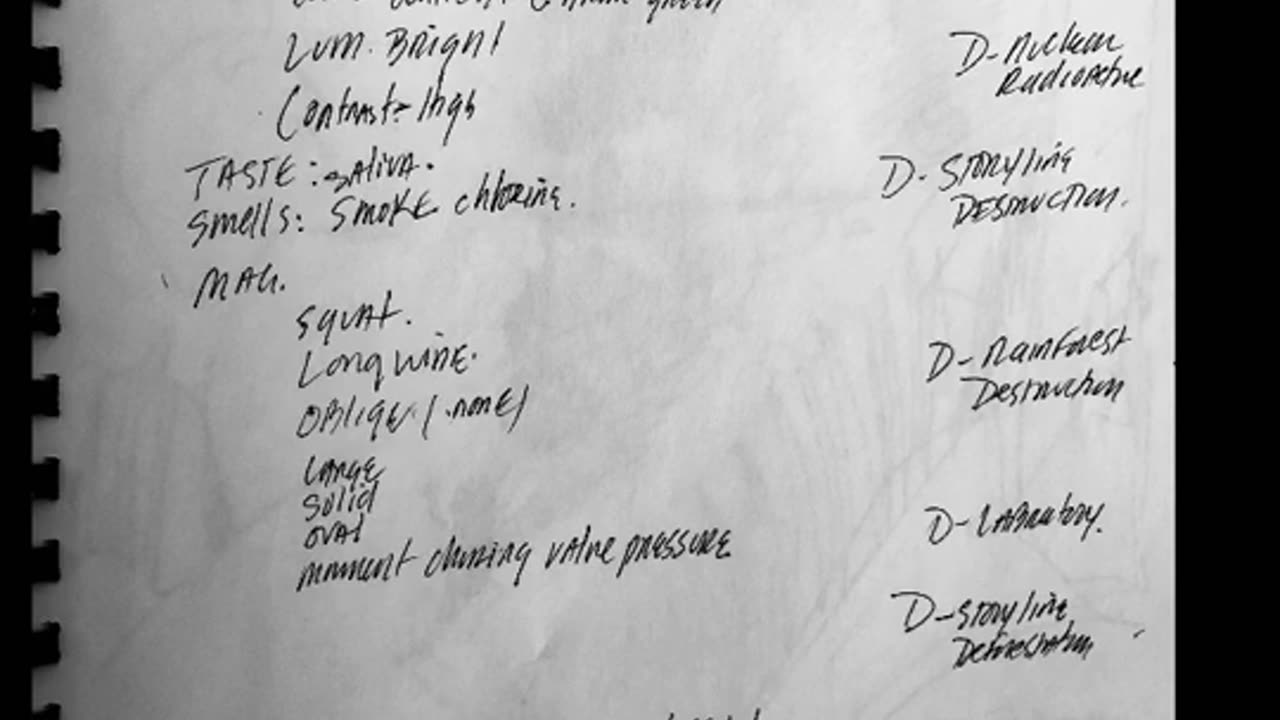 Lum. Bright
Contrast - High
TASTE: SALIVA.
Smells: SMOKE chlorine.
MAG.
SQUAT.
LONG WIDE.
OBLIQE (.NONE)
LARGE
Solid
OVAL
valve pressure
D- Nuclear
Radioactive
D- STORYLINE
DESTRUCTION.
D- Rainforest
Destruction
D- Laboratory.
D- Storyline
Deforestation